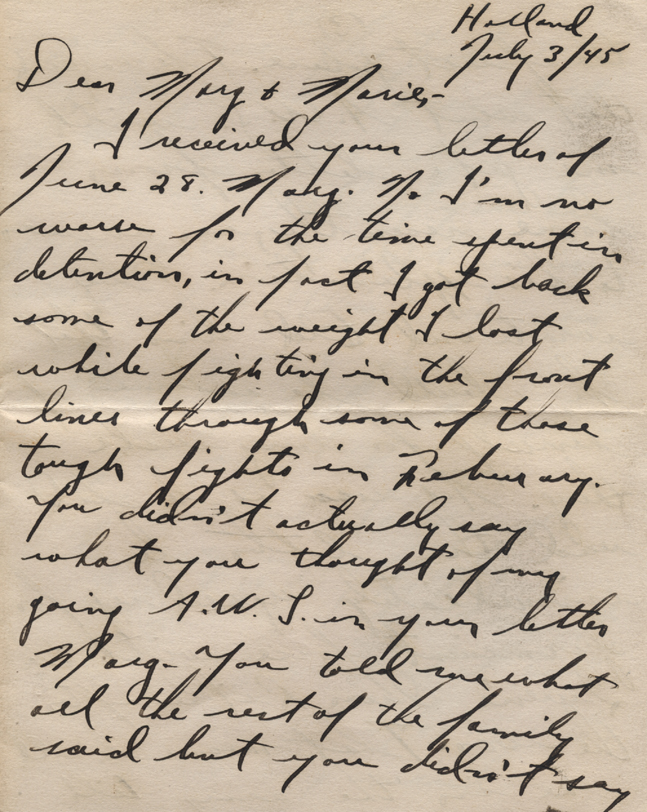 Holland
July 3/45
Dear Marg & Marie:-
I received your letter of
June 28. Marg. No I'm no
worse for the time spent in
detention, in fact I got back
some of the weight I lost
while fighting in the front
lines through some of those
tough fights in Feburary.
You didn't actually say
what you thought of my
going A.W.L. in your letter
Marg. You told me what
all the rest of the family
said but you didn't say